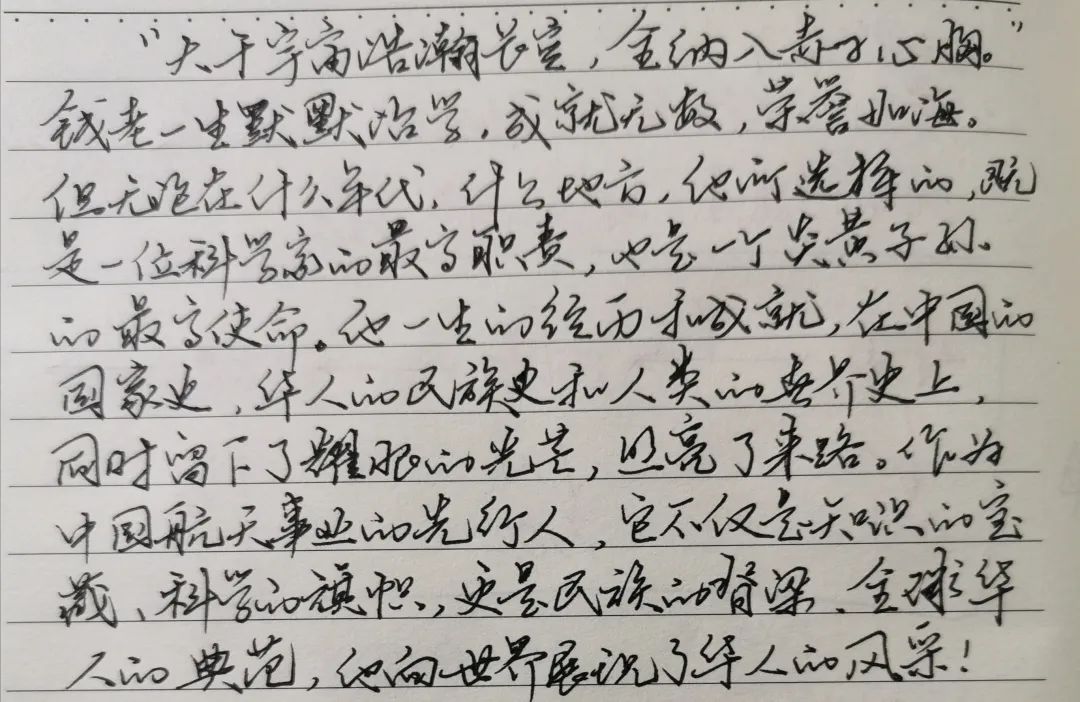 “大千宇宙浩瀚长空，全纳入赤子心胸。”
钱老一生默默治学，成就无数，荣誉如海。
但无论在什么年代，什么地方，他所选择的，既
是一位科学家的最高职责，也是一个炎黄子孙。
的最高使命。他一生的经历和成就，在中国的
国家史，华人的民族史和人类的世界史上，
同时留下了耀眼的光芒，照亮了来路。作为
中国航天事业的先行人，它不仅是知识的宝
藏、科学的旗帜，更是民族的脊梁、全球华
人的典范，他向世界展现了华人的风采！